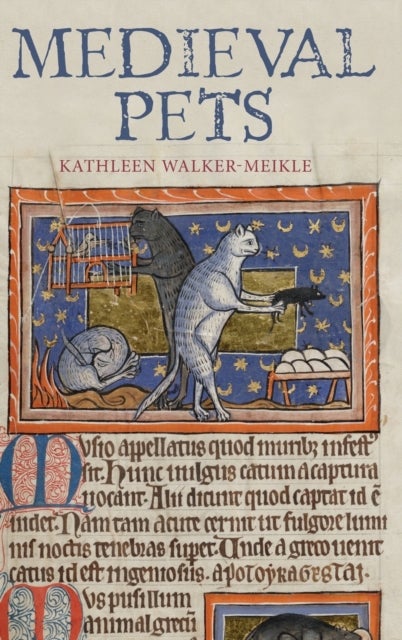 MEDIEVAL
PETS
KATHLEEN WALKER-MEIKLE
Musio appellatus quod muribꝫ infest
sit. Hunc uulgus catum a captura
uocant. Alii dicunt quod captat id ē
uidet. Nam tam acute cernit ut fulgore lumi
nis noctis tenebras superet. Unde a greco uenit
catus id est ingeniosus.
Mus pusillum
animal grecū